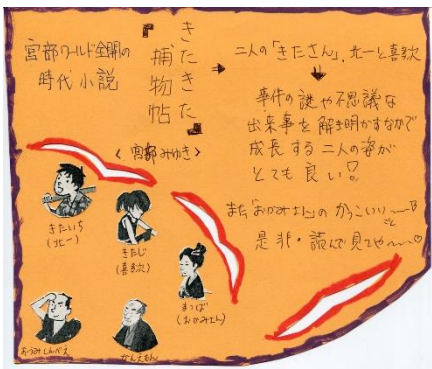 宮部ワールド全開の
時代小説
『きたきた
捕物帖』
〈宮部みゆき〉
→ 二人の「きたさん」、北一と喜多次
↓
事件の謎や不思議な
出来事を解き明かすなかで
成長する二人の姿が
とても良い!
また「おかみさん」のかっこいい〜こと
是非・読んで見てや〜♡
きたいち
(北一)
きたじ
(喜多次)
まつば
(おかみさん)
おうみしんべえ
かんえもん